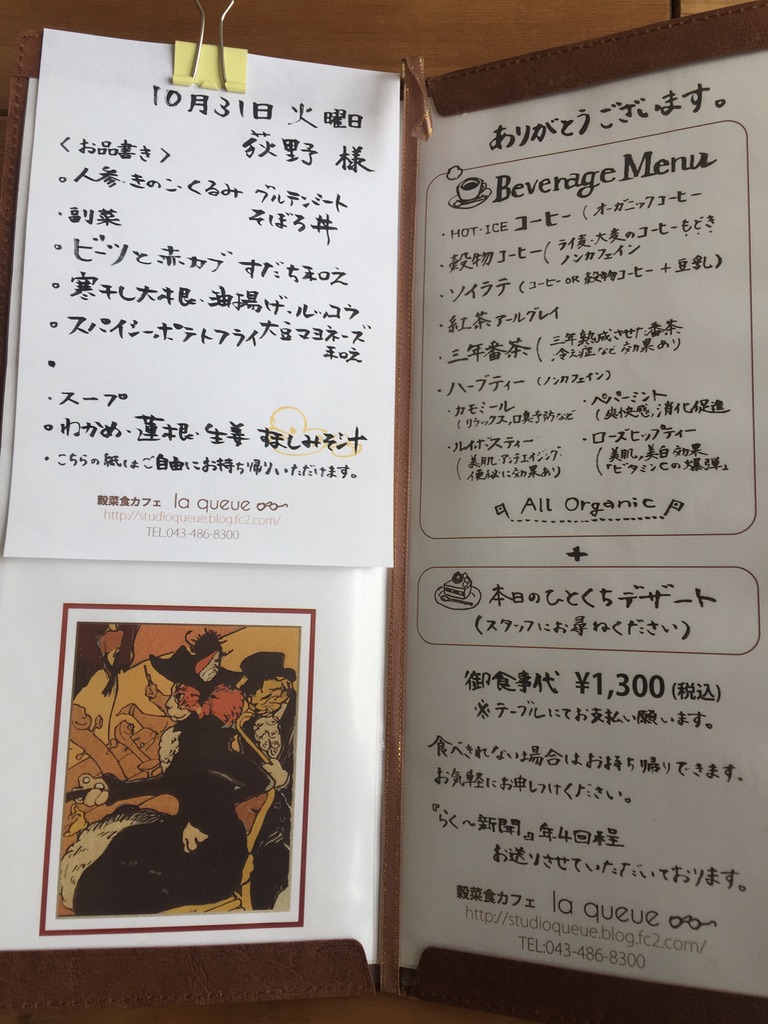 10月31日 火曜日
荻野 様
〈お品書き〉
。人参・きのこ・くるみ グルテンミート
そぼろ丼
・副菜
。ビーツと赤カブ すだち和え
。寒干し大根・油揚げ・ルッコラ
。スパイシーポテトフライ 大豆マヨネーズ
和え
・
・スープ
。わかめ・蓮根・生姜 すましみそ汁
・こちらの紙はご自由にお持ち帰りいただけます。
穀菜食カフェ la queue
http://studioqueue.blog.fc2.com/
TEL:043-486-8300
ありがとうございます。
Beverage Menu
・HOT・ICE コーヒー (オーガニックコーヒー
・穀物コーヒー(ライ麦・大麦のコーヒーもどき
ノンカフェイン
・ソイラテ (コーヒー OR 穀物コーヒー + 豆乳)
・紅茶 アールグレイ
・三年番茶 (三年熟成させた番茶
冷え症など効果あり
・ハーブティー (ノンカフェイン)
・カモミール
(リラックス,口臭予防など
・ペパーミント
(爽快感,消化促進
・ルイボスティー
(美肌・アンチエイジング・
便秘に効果あり
・ローズヒップティー
(美肌,美白効果
「ビタミンCの爆弾」
All Organic
+
本日のひとくちデザート
(スタッフにお尋ねください)
御食事代 ¥1,300 (税込)
※テーブルにてお支払い願います。
食べきれない場合はお持ち帰りできます。
お気軽にお申しつけください。
『らく〜新聞』年4回程
お送りさせていただいております。
穀菜食カフェ la queue
http://studioqueue.blog.fc2.com/
TEL:043-486-8300